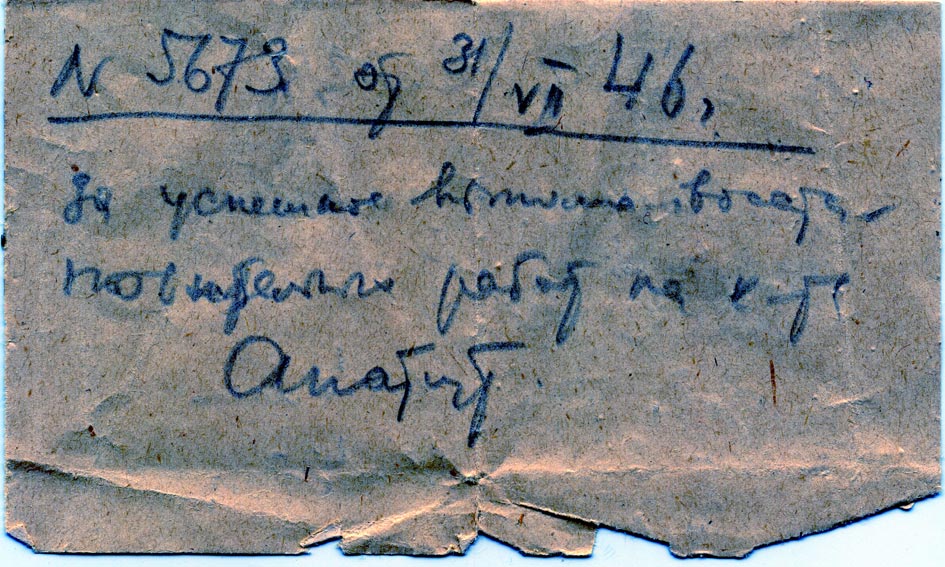 N 5673 от 31/VII 46,
За успешное выполн. восста-
новительных работ на к-те
Апатит.